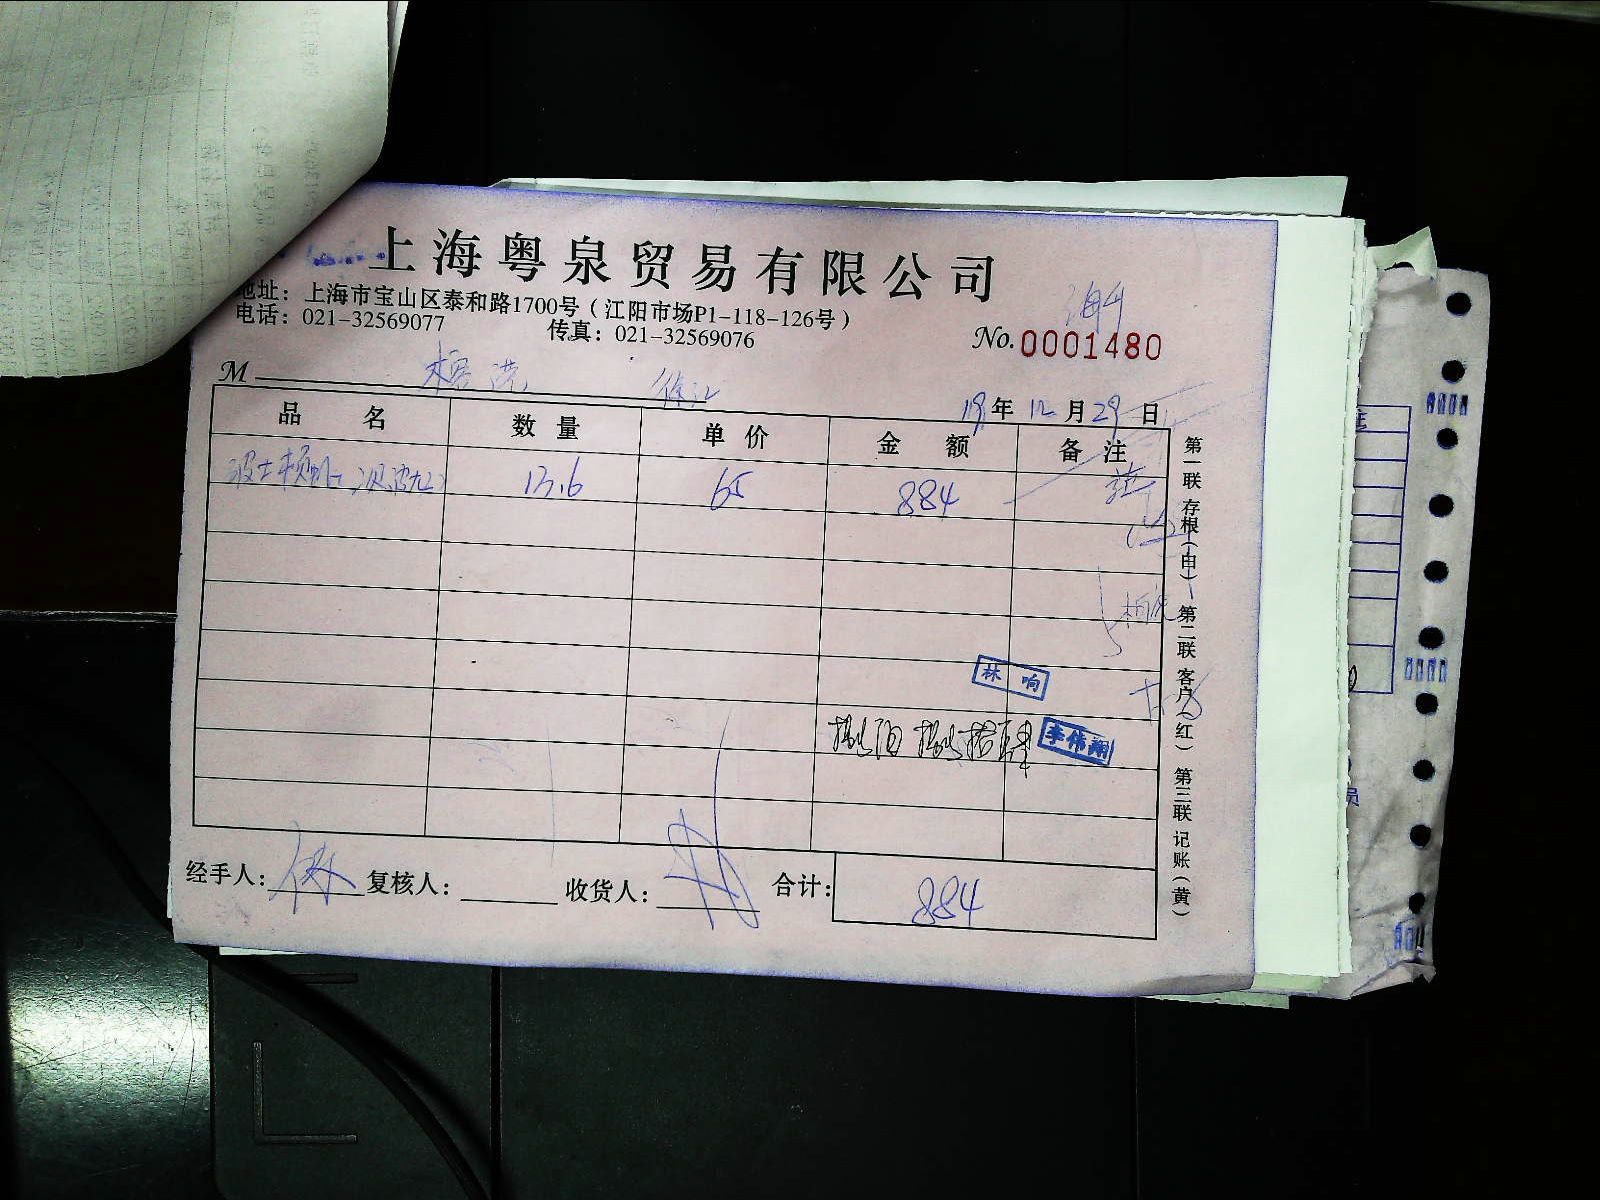 上海粤泉贸易有限公司
地址：上海市宝山区泰和路1700号（江阳市场P1-118-126号）
电话：021-32569077 传真：021-32569076
No.0001480
M
19年12月29日
品名 数量 单价 金额 备注
13.6 65 884
林响
捌佰捌拾肆
李伟翔
经手人： 复核人： 收货人： 合计：884
第一联 存根（白） 第二联 客户（红） 第三联 记账（黄）